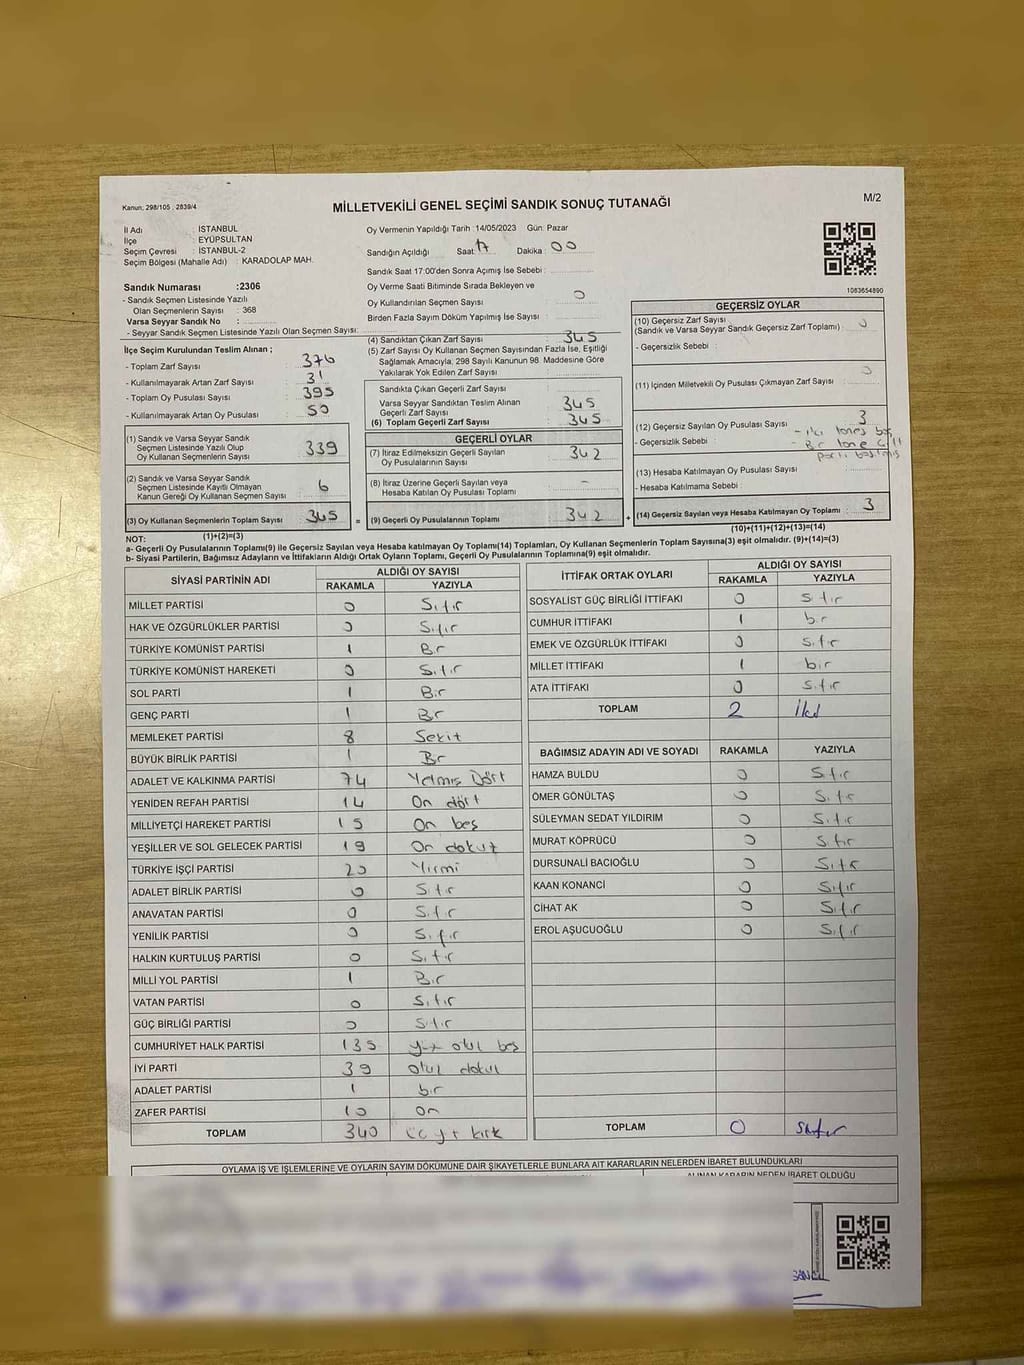 Kanun; 298/105 , 2839/4
MİLLETVEKİLİ GENEL SEÇİMİ SANDIK SONUÇ TUTANAĞI
M/2
İl Adı : İSTANBUL
İlçe : EYÜPSULTAN
Seçim Çevresi : İSTANBUL-2
Seçim Bölgesi (Mahalle Adı) : KARADOLAP MAH.
Sandık Numarası :2306
- Sandık Seçmen Listesinde Yazılı
Olan Seçmenlerin Sayısı : 368
Varsa Seyyar Sandık No :
- Seyyar Sandık Seçmen Listesinde Yazılı Olan Seçmen Sayısı:
Oy Vermenin Yapıldığı Tarih :14/05/2023 Gün: Pazar
Sandığın Açıldığı Saat: 17 Dakika : 00
Sandık Saat 17:00'den Sonra Açılmış İse Sebebi :
Oy Verme Saati Bitiminde Sırada Bekleyen ve
Oy Kullandırılan Seçmen Sayısı : 0
Birden Fazla Sayım Döküm Yapılmış İse Sayısı :
1083654890
İlçe Seçim Kurulundan Teslim Alınan ;
- Toplam Zarf Sayısı : 376
- Kullanılmayarak Artan Zarf Sayısı : 31
- Toplam Oy Pusulası Sayısı : 395
- Kullanılmayarak Artan Oy Pusulası : 50
(1) Sandık ve Varsa Seyyar Sandık
Seçmen Listesinde Yazılı Olup
Oy Kullanan Seçmenlerin Sayısı : 339
(2) Sandık ve Varsa Seyyar Sandık
Seçmen Listesinde Kayıtlı Olmayan
Kanun Gereği Oy Kullanan Seçmen Sayısı : 6
(3) Oy Kullanan Seçmenlerin Toplam Sayısı : 345
(1)+(2)=(3)
(4) Sandıktan Çıkan Zarf Sayısı : 345
(5) Zarf Sayısı Oy Kullanan Seçmen Sayısından Fazla İse, Eşitliği
Sağlamak Amacıyla; 298 Sayılı Kanunun 98. Maddesine Göre
Yakılarak Yok Edilen Zarf Sayısı :
Sandıkta Çıkan Geçerli Zarf Sayısı :
Varsa Seyyar Sandıktan Teslim Alınan
Geçerli Zarf Sayısı : 345
(6) Toplam Geçerli Zarf Sayısı : 345
GEÇERLİ OYLAR
(7) İtiraz Edilmeksizin Geçerli Sayılan
Oy Pusulalarının Sayısı : 342
(8) İtiraz Üzerine Geçerli Sayılan veya
Hesaba Katılan Oy Pusulası Toplamı : -
= (9) Geçerli Oy Pusulalarının Toplamı : 342
GEÇERSİZ OYLAR
(10) Geçersiz Zarf Sayısı
(Sandık ve Varsa Seyyar Sandık Geçersiz Zarf Toplamı) : 0
- Geçersizlik Sebebi :
(11) İçinden Milletvekili Oy Pusulası Çıkmayan Zarf Sayısı : 0
(12) Geçersiz Sayılan Oy Pusulası Sayısı : 3
- Geçersizlik Sebebi : - iki tanesi boş
- Bir tane
(13) Hesaba Katılmayan Oy Pusulası Sayısı :
- Hesaba Katılmama Sebebi :
+ (14) Geçersiz Sayılan veya Hesaba Katılmayan Oy Toplamı : 3
(10)+(11)+(12)+(13)=(14)
NOT:
a- Geçerli Oy Pusulalarının Toplamı(9) ile Geçersiz Sayılan veya Hesaba katılmayan Oy Toplamı(14) Toplamları, Oy Kullanan Seçmenlerin Toplam Sayısına(3) eşit olmalıdır. (9)+(14)=(3)
b- Siyasi Partilerin, Bağımsız Adayların ve İttifakların Aldığı Ortak Oyların Toplamı, Geçerli Oy Pusulalarının Toplamına(9) eşit olmalıdır.
SİYASİ PARTİNİN ADI ALDIĞI OY SAYISI
RAKAMLA YAZIYLA
MİLLET PARTİSİ 0 Sıfır
HAK VE ÖZGÜRLÜKLER PARTİSİ 0 Sıfır
TÜRKİYE KOMÜNİST PARTİSİ 1 Bir
TÜRKİYE KOMÜNİST HAREKETİ 0 Sıfır
SOL PARTİ 1 Bir
GENÇ PARTİ 1 Bir
MEMLEKET PARTİSİ 8 Sekiz
BÜYÜK BİRLİK PARTİSİ 1 Bir
ADALET VE KALKINMA PARTİSİ 74 Yetmiş Dört
YENİDEN REFAH PARTİSİ 14 On dört
MİLLİYETÇİ HAREKET PARTİSİ 15 On beş
YEŞİLLER VE SOL GELECEK PARTİSİ 19 On dokuz
TÜRKİYE İŞÇİ PARTİSİ 20 Yirmi
ADALET BİRLİK PARTİSİ 0 Sıfır
ANAVATAN PARTİSİ 0 Sıfır
YENİLİK PARTİSİ 0 Sıfır
HALKIN KURTULUŞ PARTİSİ 0 Sıfır
MİLLİ YOL PARTİSİ 1 Bir
VATAN PARTİSİ 0 Sıfır
GÜÇ BİRLİĞİ PARTİSİ 0 Sıfır
CUMHURİYET HALK PARTİSİ 135 yüz otuz beş
İYİ PARTİ 39 otuz dokuz
ADALET PARTİSİ 1 bir
ZAFER PARTİSİ 10 on
TOPLAM 340 üç yüz kırk
İTTİFAK ORTAK OYLARI ALDIĞI OY SAYISI
RAKAMLA YAZIYLA
SOSYALİST GÜÇ BİRLİĞİ İTTİFAKI 0 Sıfır
CUMHUR İTTİFAKI 1 bir
EMEK VE ÖZGÜRLÜK İTTİFAKI 0 Sıfır
MİLLET İTTİFAKI 1 bir
ATA İTTİFAKI 0 Sıfır
TOPLAM 2 iki
BAĞIMSIZ ADAYIN ADI VE SOYADI RAKAMLA YAZIYLA
HAMZA BULDU 0 Sıfır
ÖMER GÖNÜLTAŞ 0 Sıfır
SÜLEYMAN SEDAT YILDIRIM 0 Sıfır
MURAT KÖPRÜCÜ 0 Sıfır
DURSUNALİ BACIOĞLU 0 Sıfır
KAAN KONANCİ 0 Sıfır
CİHAT AK 0 Sıfır
EROL AŞUCUOĞLU 0 Sıfır
TOPLAM 0 Sıfır
OYLAMA İŞ VE İŞLEMLERİNE VE OYLARIN SAYIM DÖKÜMÜNE DAİR ŞİKAYETLERLE BUNLARA AİT KARARLARIN NELERDEN İBARET BULUNDUKLARI
ALINAN KARARIN NEDEN İBARET OLDUĞU